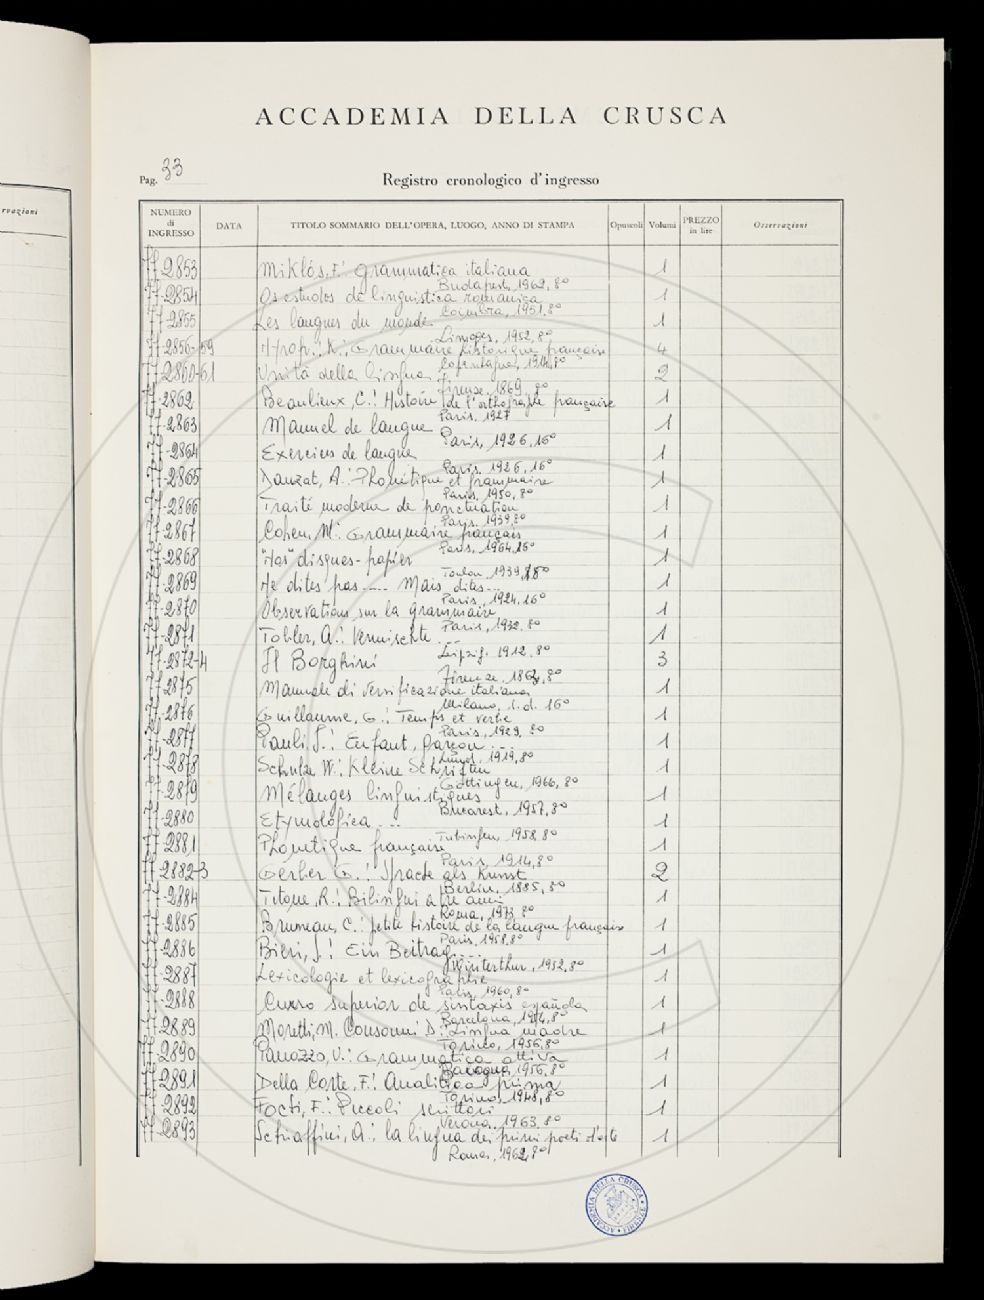 rvazioni
ACCADEMIA DELLA CRUSCA
Pag. 33
Registro cronologico d'ingresso
NUMERO di INGRESSO DATA TITOLO SOMMARIO DELL'OPERA, LUOGO, ANNO DI STAMPA Opuscoli Volumi PREZZO in lire Osservazioni
77-2853 Miklós, F.: Grammatica italiana 1
Budapest, 1962, 8°
77-2854 Os estudos de linguistica romanica 1
Coimbra, 1951, 8°
77-2855 Les langues du monde 1
Limoges, 1952, 8°
77-2856-59 Nyrop, K.: Grammaire historique française 4
Copenhague, 1914, 8°
77-2860-61 Unità della lingua 2
Firenze, 1869, 8°
77-2862 Beaulieux, C.: Histoire de l'orthographe française 1
Paris, 1927
77-2863 Manuel de langue 1
Paris, 1926, 16°
77-2864 Exercices de langue 1
Paris, 1926, 16°
77-2865 Dauzat, A.: Phonétique et grammaire 1
Paris, 1950, 8°
77-2866 Traité moderne de ponctuation 1
Paris, 1939, 8°
77-2867 Cohen, M.: Grammaire français 1
Paris, 1964, 16°
77-2868 "Nos" disques-papier 1
Toulon, 1939, 8°
77-2869 Ne dites pas.... Mais dites... 1
Paris, 1924, 16°
77-2870 Observations sur la grammaire 1
Paris, 1932, 8°
77-2871 Tobler, A.: Vermischte... 1
Leipzig, 1912, 8°
77-2872-4 Il Borghini 3
Firenze, 8°
77-2875 Manuale di versificazione italiana 1
Milano, s.d. 16°
77-2876 Guillaume, G.: Temps et verbe 1
Paris, 1929, 8°
77-2877 Pauli, I.: Enfant, garçon.... 1
Lund, 1919, 8°
77-2878 Schulze W.: Kleine Schriften 1
Göttingen, 1966, 8°
77-2879 Mélanges linguistiques 1
Bucarest, 1957, 8°
77-2880 Etymologica... 1
Tubingen, 1958, 8°
77-2881 Phonetique française 1
Paris, 1914, 8°
77-2882-3 Gerber G.: Sprache als Kunst 2
Berlin, 1885, 8°
77-2884 Titone, R.: Bilingui a tre anni 1
Roma, 1973, 8°
77-2885 Bruneau, C.: petite histoire de la langue française 1
Paris, 1958, 8°
77-2886 Bieri, J.: Ein Beitrag.... 1
Winterthur, 1952, 8°
77-2887 Lexicologie et lexicographie 1
Paris, 1960, 8°
77-2888 Curso superior de sintaxis española 1
Barcelona, 8°
77-2889 Moretti, M. Consonni D.: Lingua madre 1
Torino, 1956, 8°
77-2890 Panozzo, U.: Grammatica attiva 1
1956, 8°
77-2891 Della Corte, F.: Analitica prima 1
Torino, 1948, 8°
77-2892 Focti, F.: Piccoli scrittori 1
Verona, 1963, 8°
77-2893 Schiaffini, A.: la lingua dei primi poeti d'arte 1
Roma, 1962, 8°
ACCADEMIA DELLA CRUSCA FIRENZE